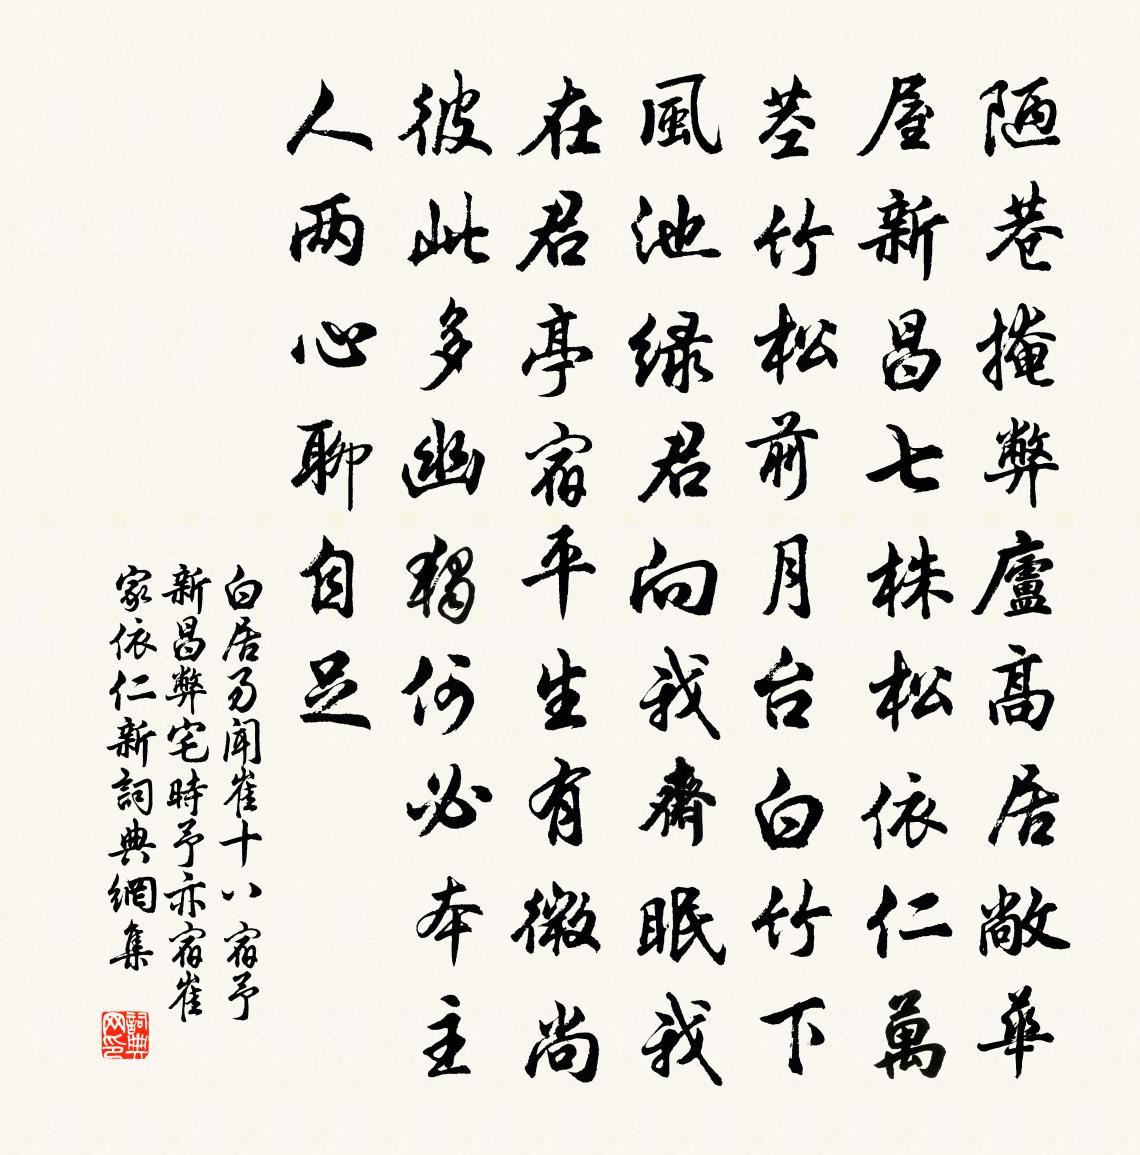 陋巷掩弊廬高居敞華
屋新昌七株松依仁萬
莖竹松前月台白竹下
風池绿君向我齋眠我
在君亭宿平生有微尚
彼此多幽獨何必本主
人两心聊自足
白居易聞崔十八宿予
新昌弊宅時予亦宿崔
家依仁新詞典網集
詞典网